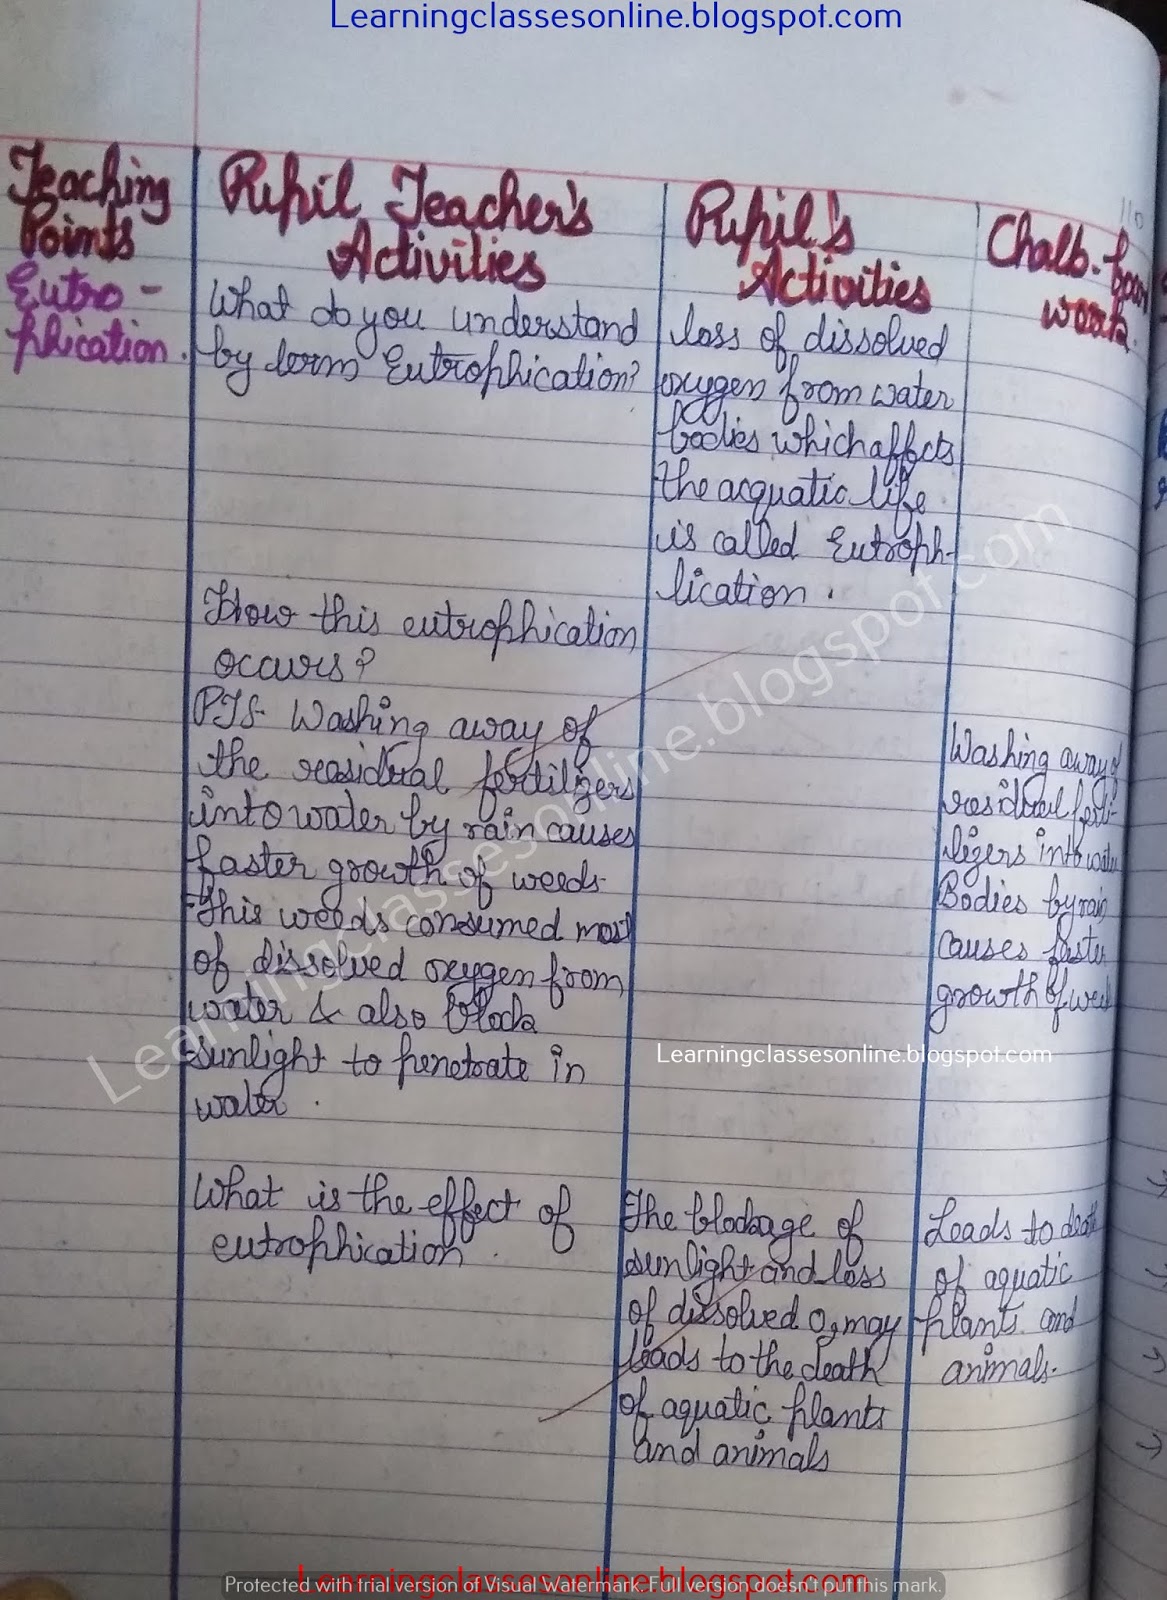 Learningclassesonline.blogspot.com
110
Teaching
Points
Pupil Teacher's
Activities
Pupil's
Activities
Chalk-boar
work
Eutro-
phication.
What do you understand
by term Eutrophication?
loss of dissolved
oxygen from water
bodies which affects
the acquatic life
is called Eutroph-
lication.
How this eutrophication
occurs?
PTS- Washing away of
the residual fertilizers
into water by rain causes
faster growth of weeds-
This weeds consumed most
of dissolved oxygen from
water & also block
sunlight to penetrate in
water.
Washing away of
residual ferti-
lizers into water
Bodies by rain
causes faster
growth of weed
Learningclassesonline.blogspot.com
Learningclassesonline.blogspot.com
What is the effect of
eutrophication.
The blockage of
sunlight and loss
of dissolved O2 may
leads to the death
of aquatic plants
and animals
Leads to death
of aquatic
plants and
animals.
Learningclassesonline.blogspot.com
Protected with trial version of Visual Watermark. Full version doesn't put this mark.